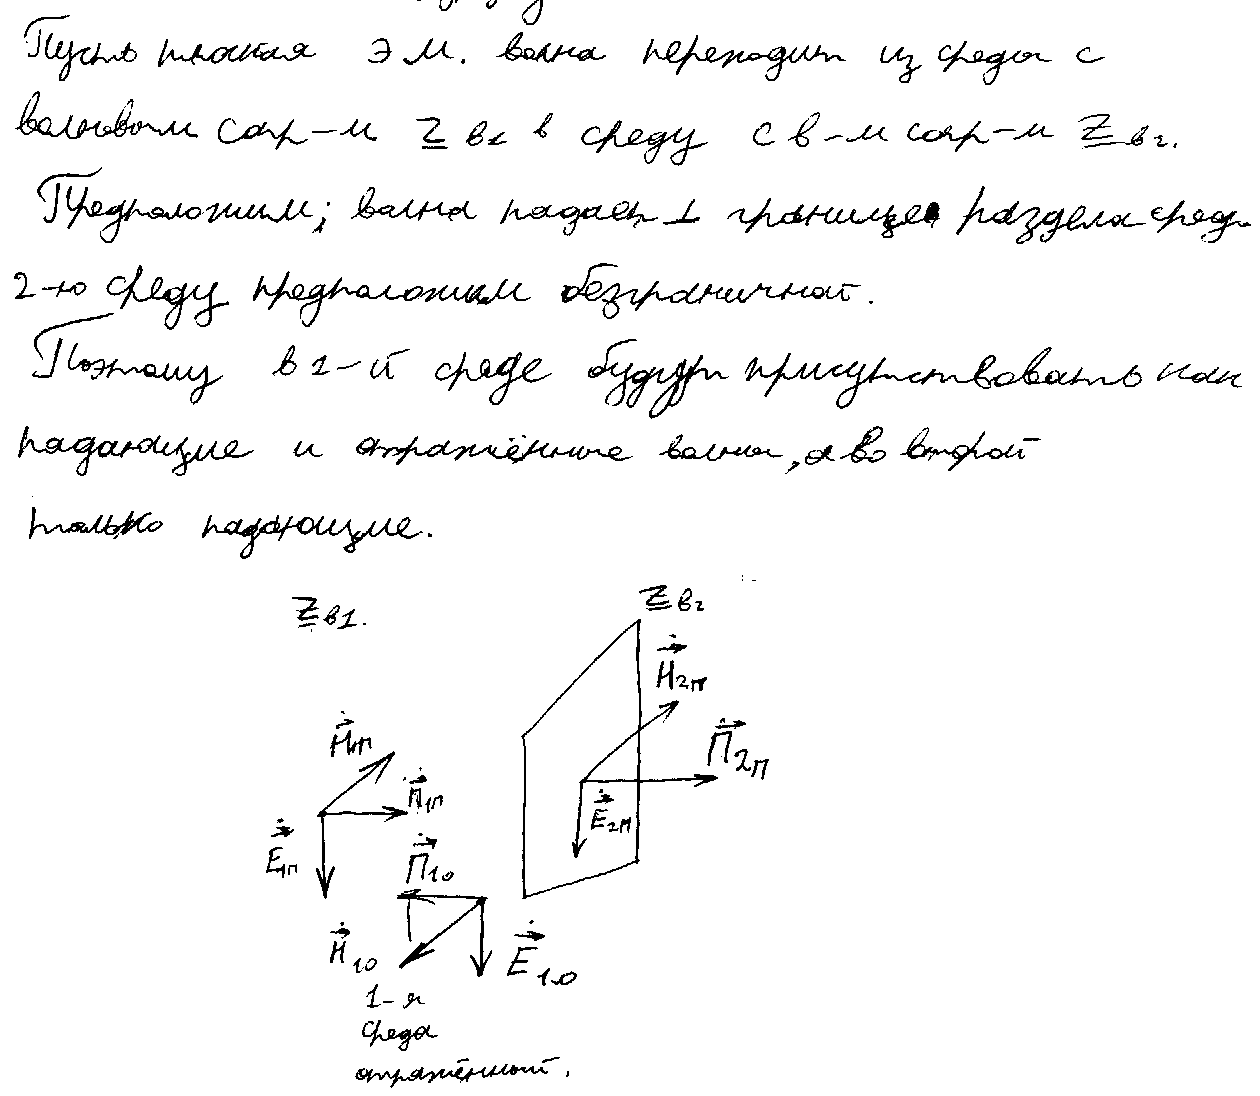 Пусть плоская эм. волна переходит из среды с
волновым сопр-м Z в1 в среду с в-м сопр-м Z в2.
Предположим, волна падает ⊥ границе раздела сред.
2-ю среду предположим безграничной.
Поэтому в 1-й среде будут присутствовать как
падающие и отражённые волны, а во второй
только падающие.
Z в1.
Z в2
H 2п
H 1п
П 2п
П 1п
E 2п
E 1п
П 1о
H 1о
E 1о
1-я
среда
отражённый.